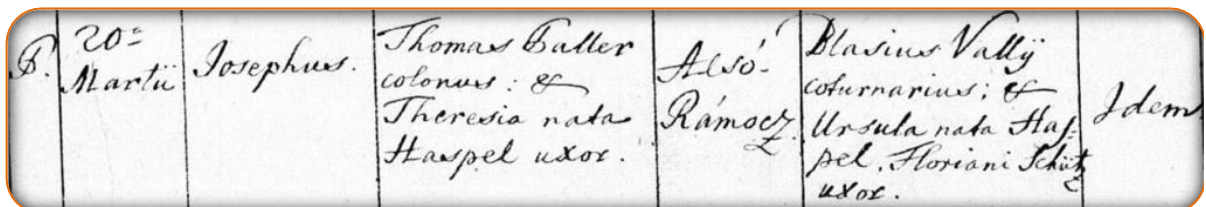 P.
20a
Martii
Josephus.
Thomas Galler
colonus: &
Theresia nata
Haspel uxor.
Alsó-
Rámocz.
Blasius Vallÿ
coturnarius; &
Ursula nata Has-
pel, Floriani Schütz
uxor.
Idem